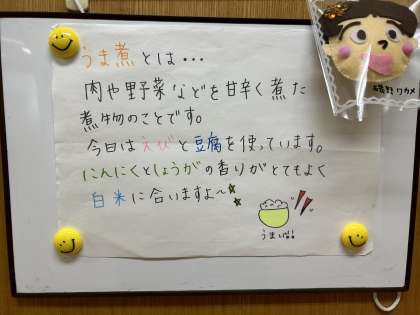 うま煮とは・・・
肉や野菜などを甘辛く煮た
煮物のことです。
今日はえびと豆腐を使っています。
にんにくとしょうがの香りがとてもよく
白米に合いますよ〜
うまい!!
磯野ワカメ